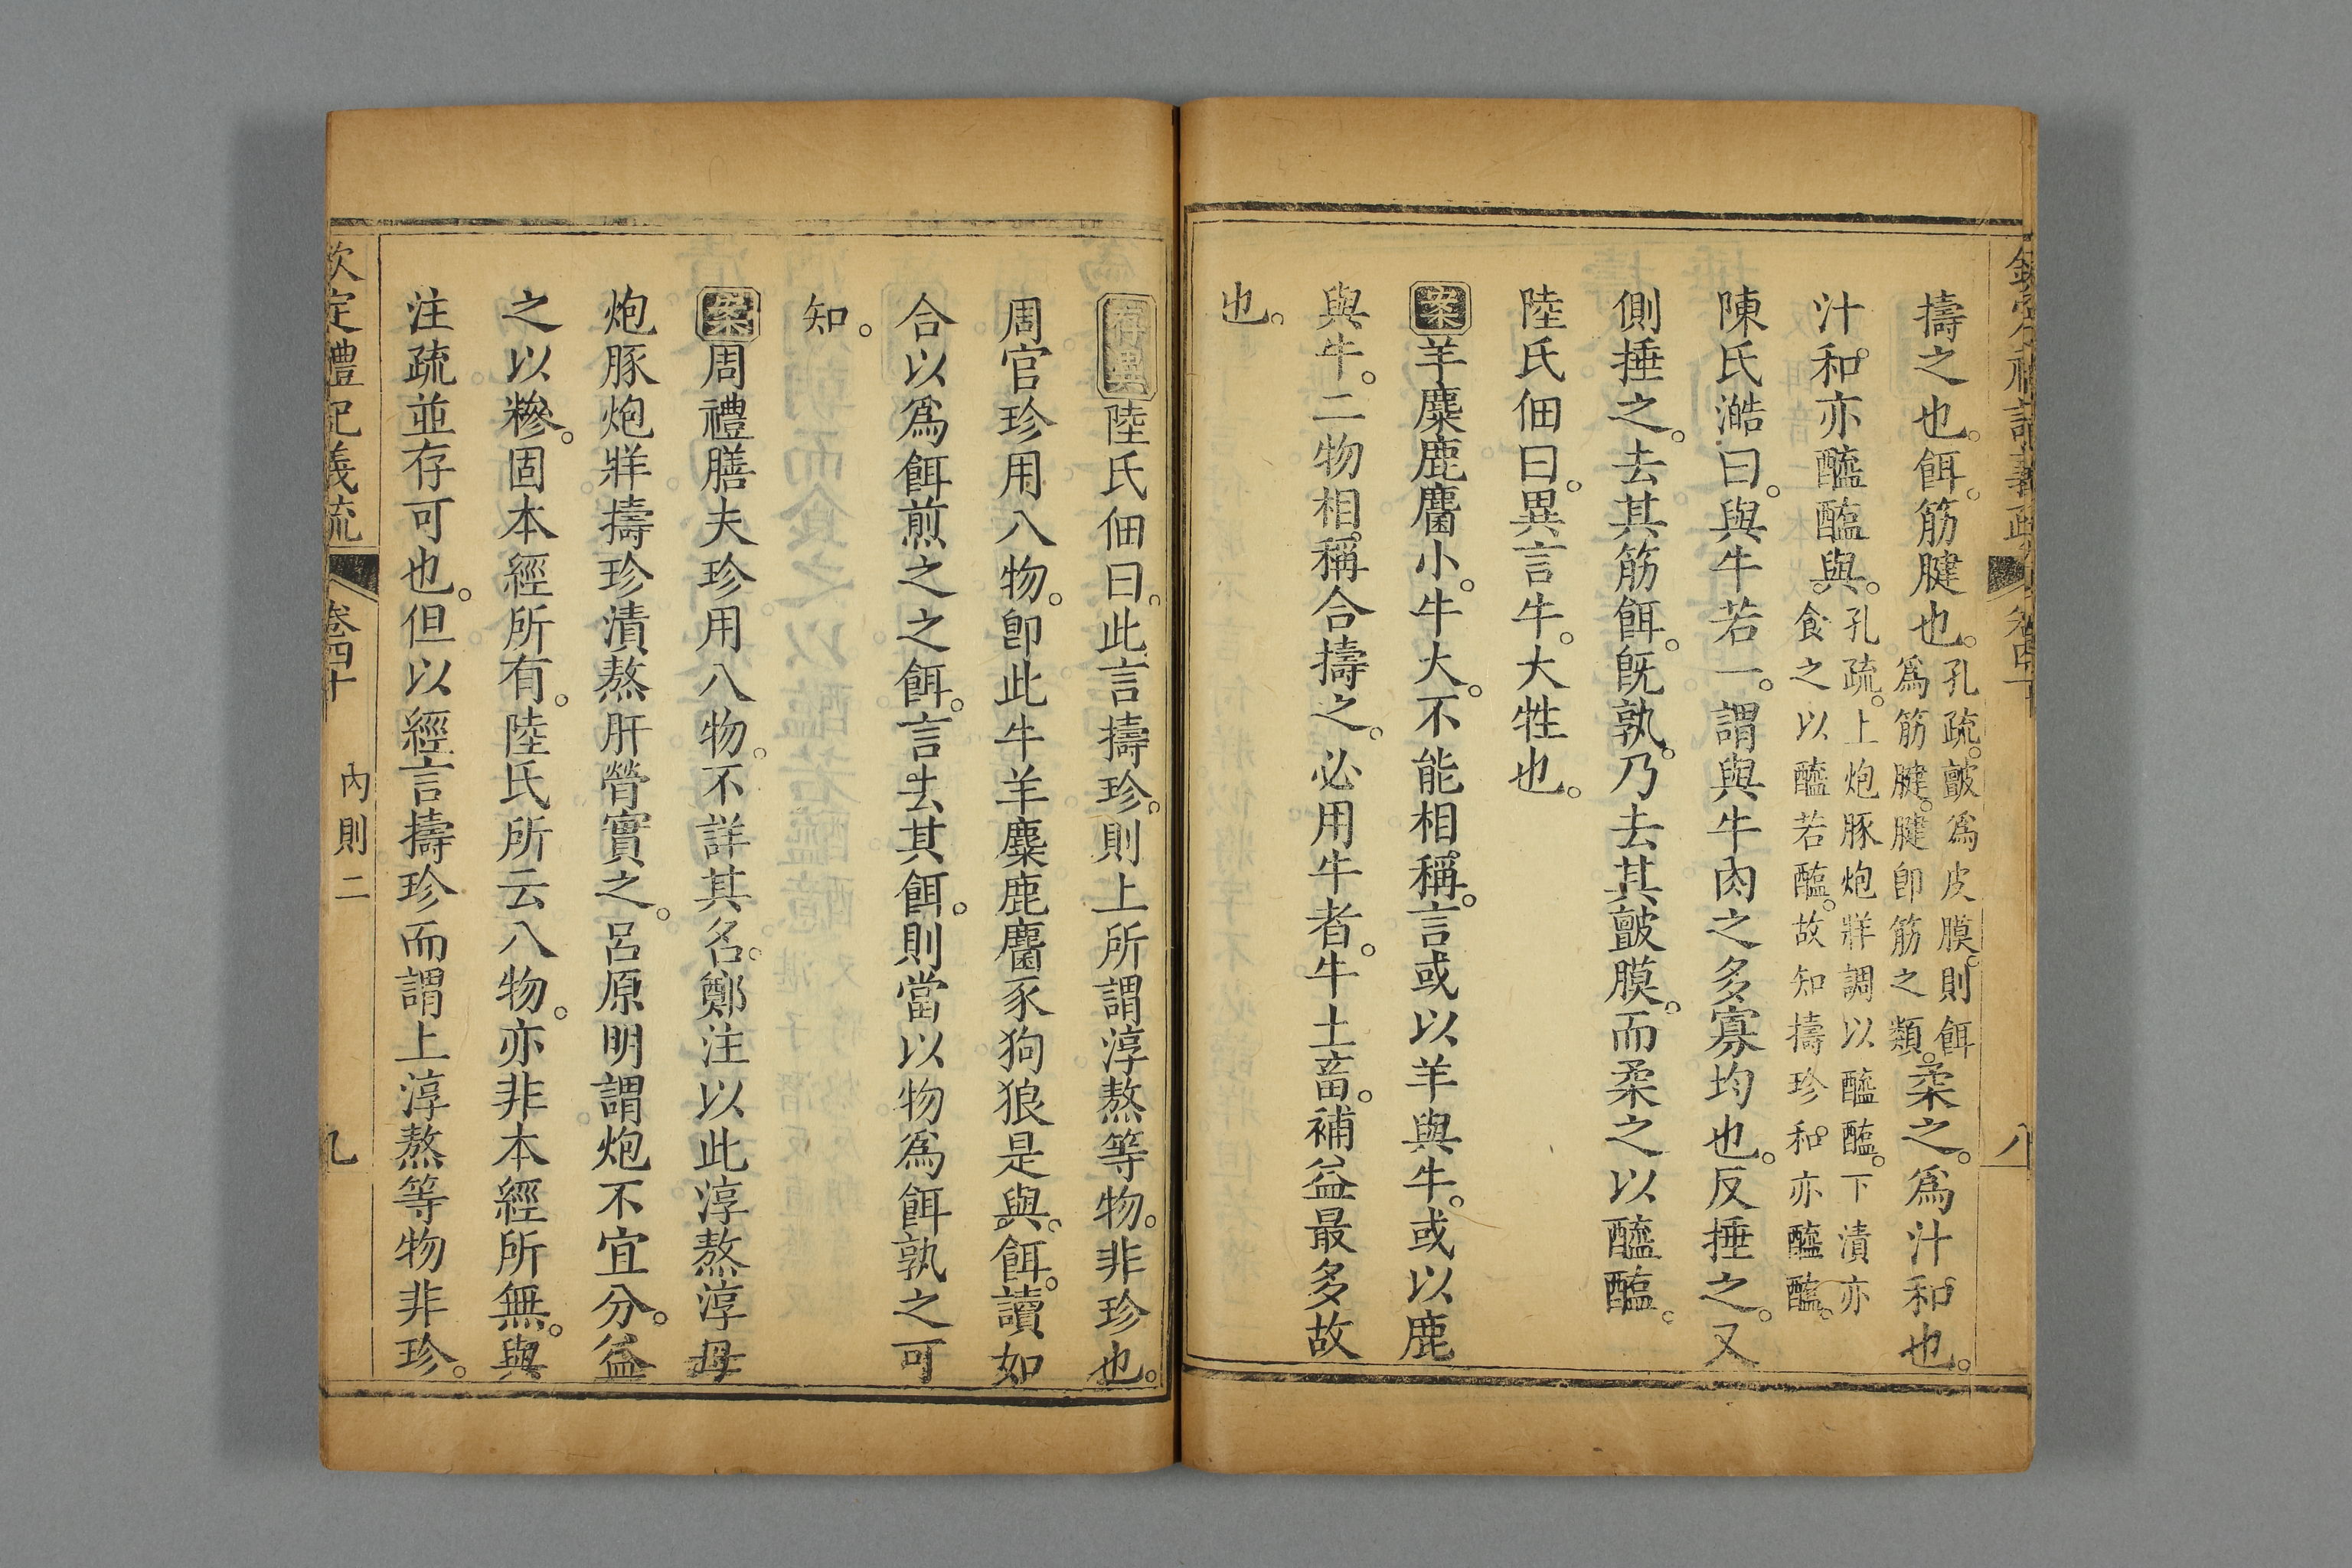 擣之也。餌。筋腱也。孔疏。皽爲皮膜。則餌爲筋腱。腱卽筋之類。柔之。爲汁和也。
汁。和亦醯醢與。孔疏。上炮豚炮牂調以醯醢。下漬亦食之以醯若醢。故知擣珍和亦醯醢。
陳氏澔曰。與牛若一。謂與牛肉之多寡均也。反捶之。又
側捶之。去其筋餌。旣孰。乃去其皽膜。而柔之以醯醢。
陸氏佃曰。異言牛。大牲也。
案羊麋鹿麕小。牛大。不能相稱。言或以羊與牛。或以鹿
與牛。二物相稱。合擣之。必用牛者。牛土畜。補益最多故
也。
存異陸氏佃曰。此言擣珍。則上所謂淳熬等物。非珍也。
周官珍用八物。卽此牛羊麋鹿麕豕狗狼是與。餌。讀如
合以爲餌煎之之餌。言去其餌。則當以物爲餌孰之可
知。
案周禮膳夫珍用八物。不詳其名。鄭注以此淳熬淳母
炮豚炮牂擣珍漬熬肝膋實之。呂原明謂炮不宜分。益
之以糝。固本經所有。陸氏所云八物。亦非本經所無。與
注疏並存可也。但以經言擣珍而謂上淳熬等物非珍。
欽定禮記義疏 卷四十 內則二 九